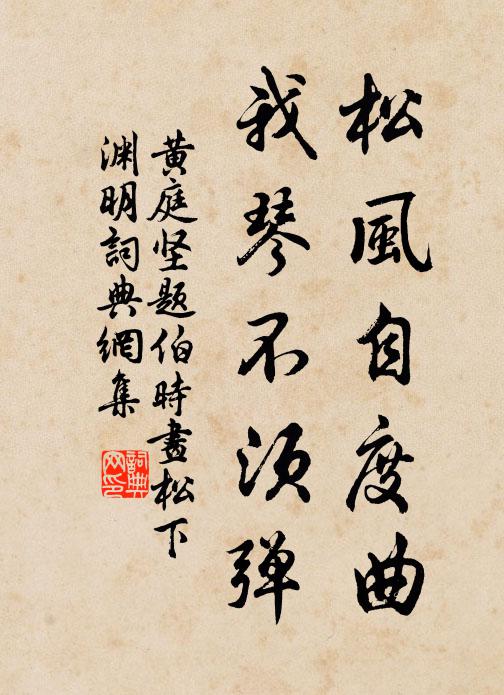 松風自度曲
我琴不須弹
黄庭坚題伯時畫松下
渊明詞典網集
詞典网印